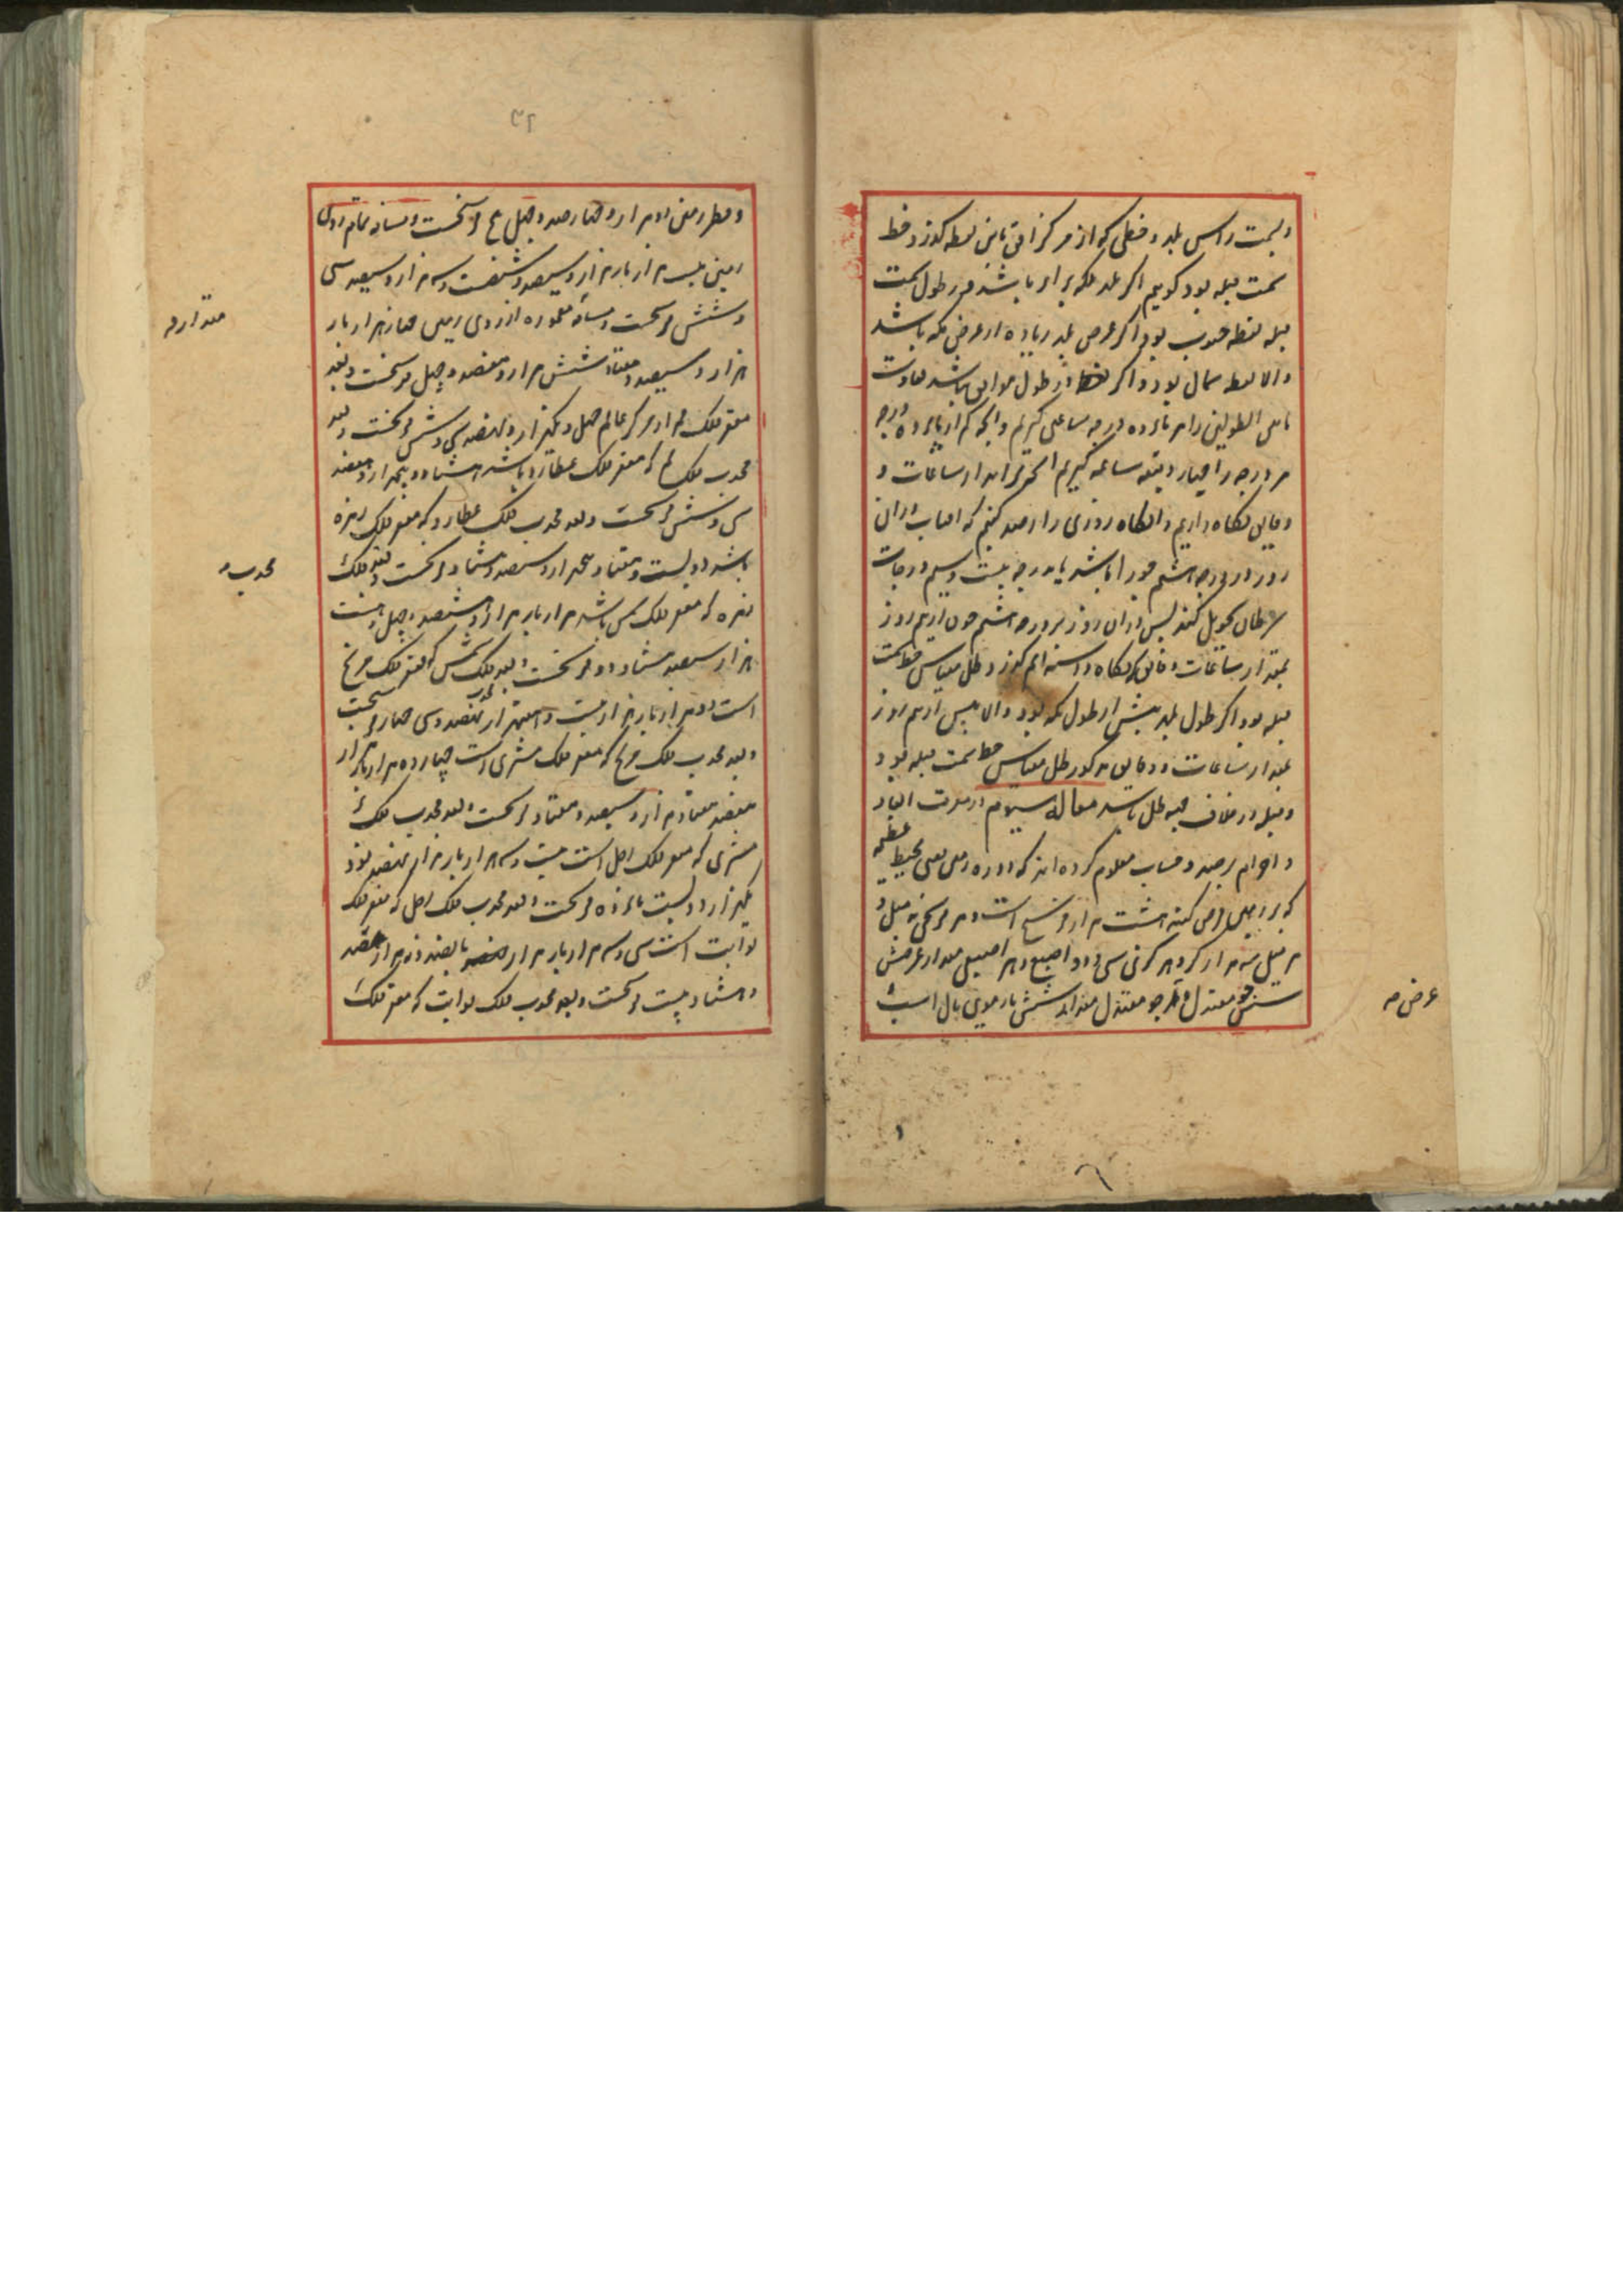 وسمت راس بلد و خطی که از مرکز افق باین نقطه گذرد خط
سمت قبله بود گوییم اگر بلد مکه برابر باشد در طول سمت
قبله نقطه جنوب بود اگر عرض بلد زیاده از عرض مکه باشد
والا نقطه شمال بود و اگر در طول موافق نباشد تفاوت
مابین الطولین را هر پانزده درجه ساعتی گیریم و انچه کم از پانزده درجه
هر درجه را چهار دقیقه ساعه گیریم انچه براید از ساعات و
دقایق نگاه داریم و انگاه روزی را رصد کنیم که افتاب دران
روز در درجه هشتم جوزا باشد یا بدرجه بیست و سیم درجات
سرطان تحویل کند پس دران روز چون از نیم روز
بمقدار ساعات و دقایق نگاه داشته ایم گذرد ظل مقیاس خط سمت
قبله بود اگر طول بلد بیش از طول مکه بود والا پیش از نیم روز
بمقدار ساعات و دقایق مذکور ظل مقیاس خط سمت قبله بود
وقبله در خلاف جهه ظل باشد مقاله سیوم در معرفت ابعاد
و اجرام برصد و حساب معلوم کرده اند که دوره زمین یعنی محیط عظیمه
که بر زمین فرض کنند هشت هزار فرسخ است و هر فرسخی سه میل و
هر میل سه هزار گز و هر گزی سی و دو اصبع و هر اصبعی مقدار عرض شش
شش جو معتدل و هر جو معتدل مقدار شش تار موی یال اسب
عرض مه
۳۲
و قطر زمین دو هزار و پانصد و چهل و پنج فرسخست و مساحه تمام روی
زمین بیست هزار بار هزار و سیصد و شصت و سه هزار و سیصد سی
و شش فرسخست و مساحه معموره از روی زمین چهار هزار بار
هزار و سیصد و هفتاد شش هزار و هفتصد و چهل فرسخست و بعد
مقعر فلک قمر از مرکز عالم چهل و یکهزار و نهصد سی و شش فرسخست و بعد
محدب فلک قمر که مقعر فلک عطارد باشد هشتاد و پنجهزار و هفتصد
سی و شش فرسخست و بعد محدب فلک عطارد که مقعر فلک زهره
باشد دویست و هفتاد پنجهزار و سیصد و هشتاد فرسخست و بعد فلک
زهره که مقعر فلک شمس باشد هزار بار هزار و هشتصد و چهل و هشت
هزار سیصد هشتاد دو فرسخست و بعد محدب فلک شمس که مقعر فلک مریخ
است دو هزار بار هزار بیست و هفتهزار نهصد و سی چهار فرسخست
و بعد محدب فلک مریخ که مقعر فلک مشتری است چهارده هزار بار هزار
هفتصد هفتاد هزار و سیصد و هفتاد فرسخست و بعد محدب فلک
مشتری که مقعر فلک زحل است بیست و سه هزار بار هزار نهصد نود
یکهزار و دویست پانزده فرسخست و بعد محدب فلک زحل که مقعر فلک
ثوابت است سی و سه هزار بار هزار پانصد و نه هزار
و هشتاد بیست فرسخست و بعد محدب فلک ثوابت که مقعر فلک
مقدار مه
محدب